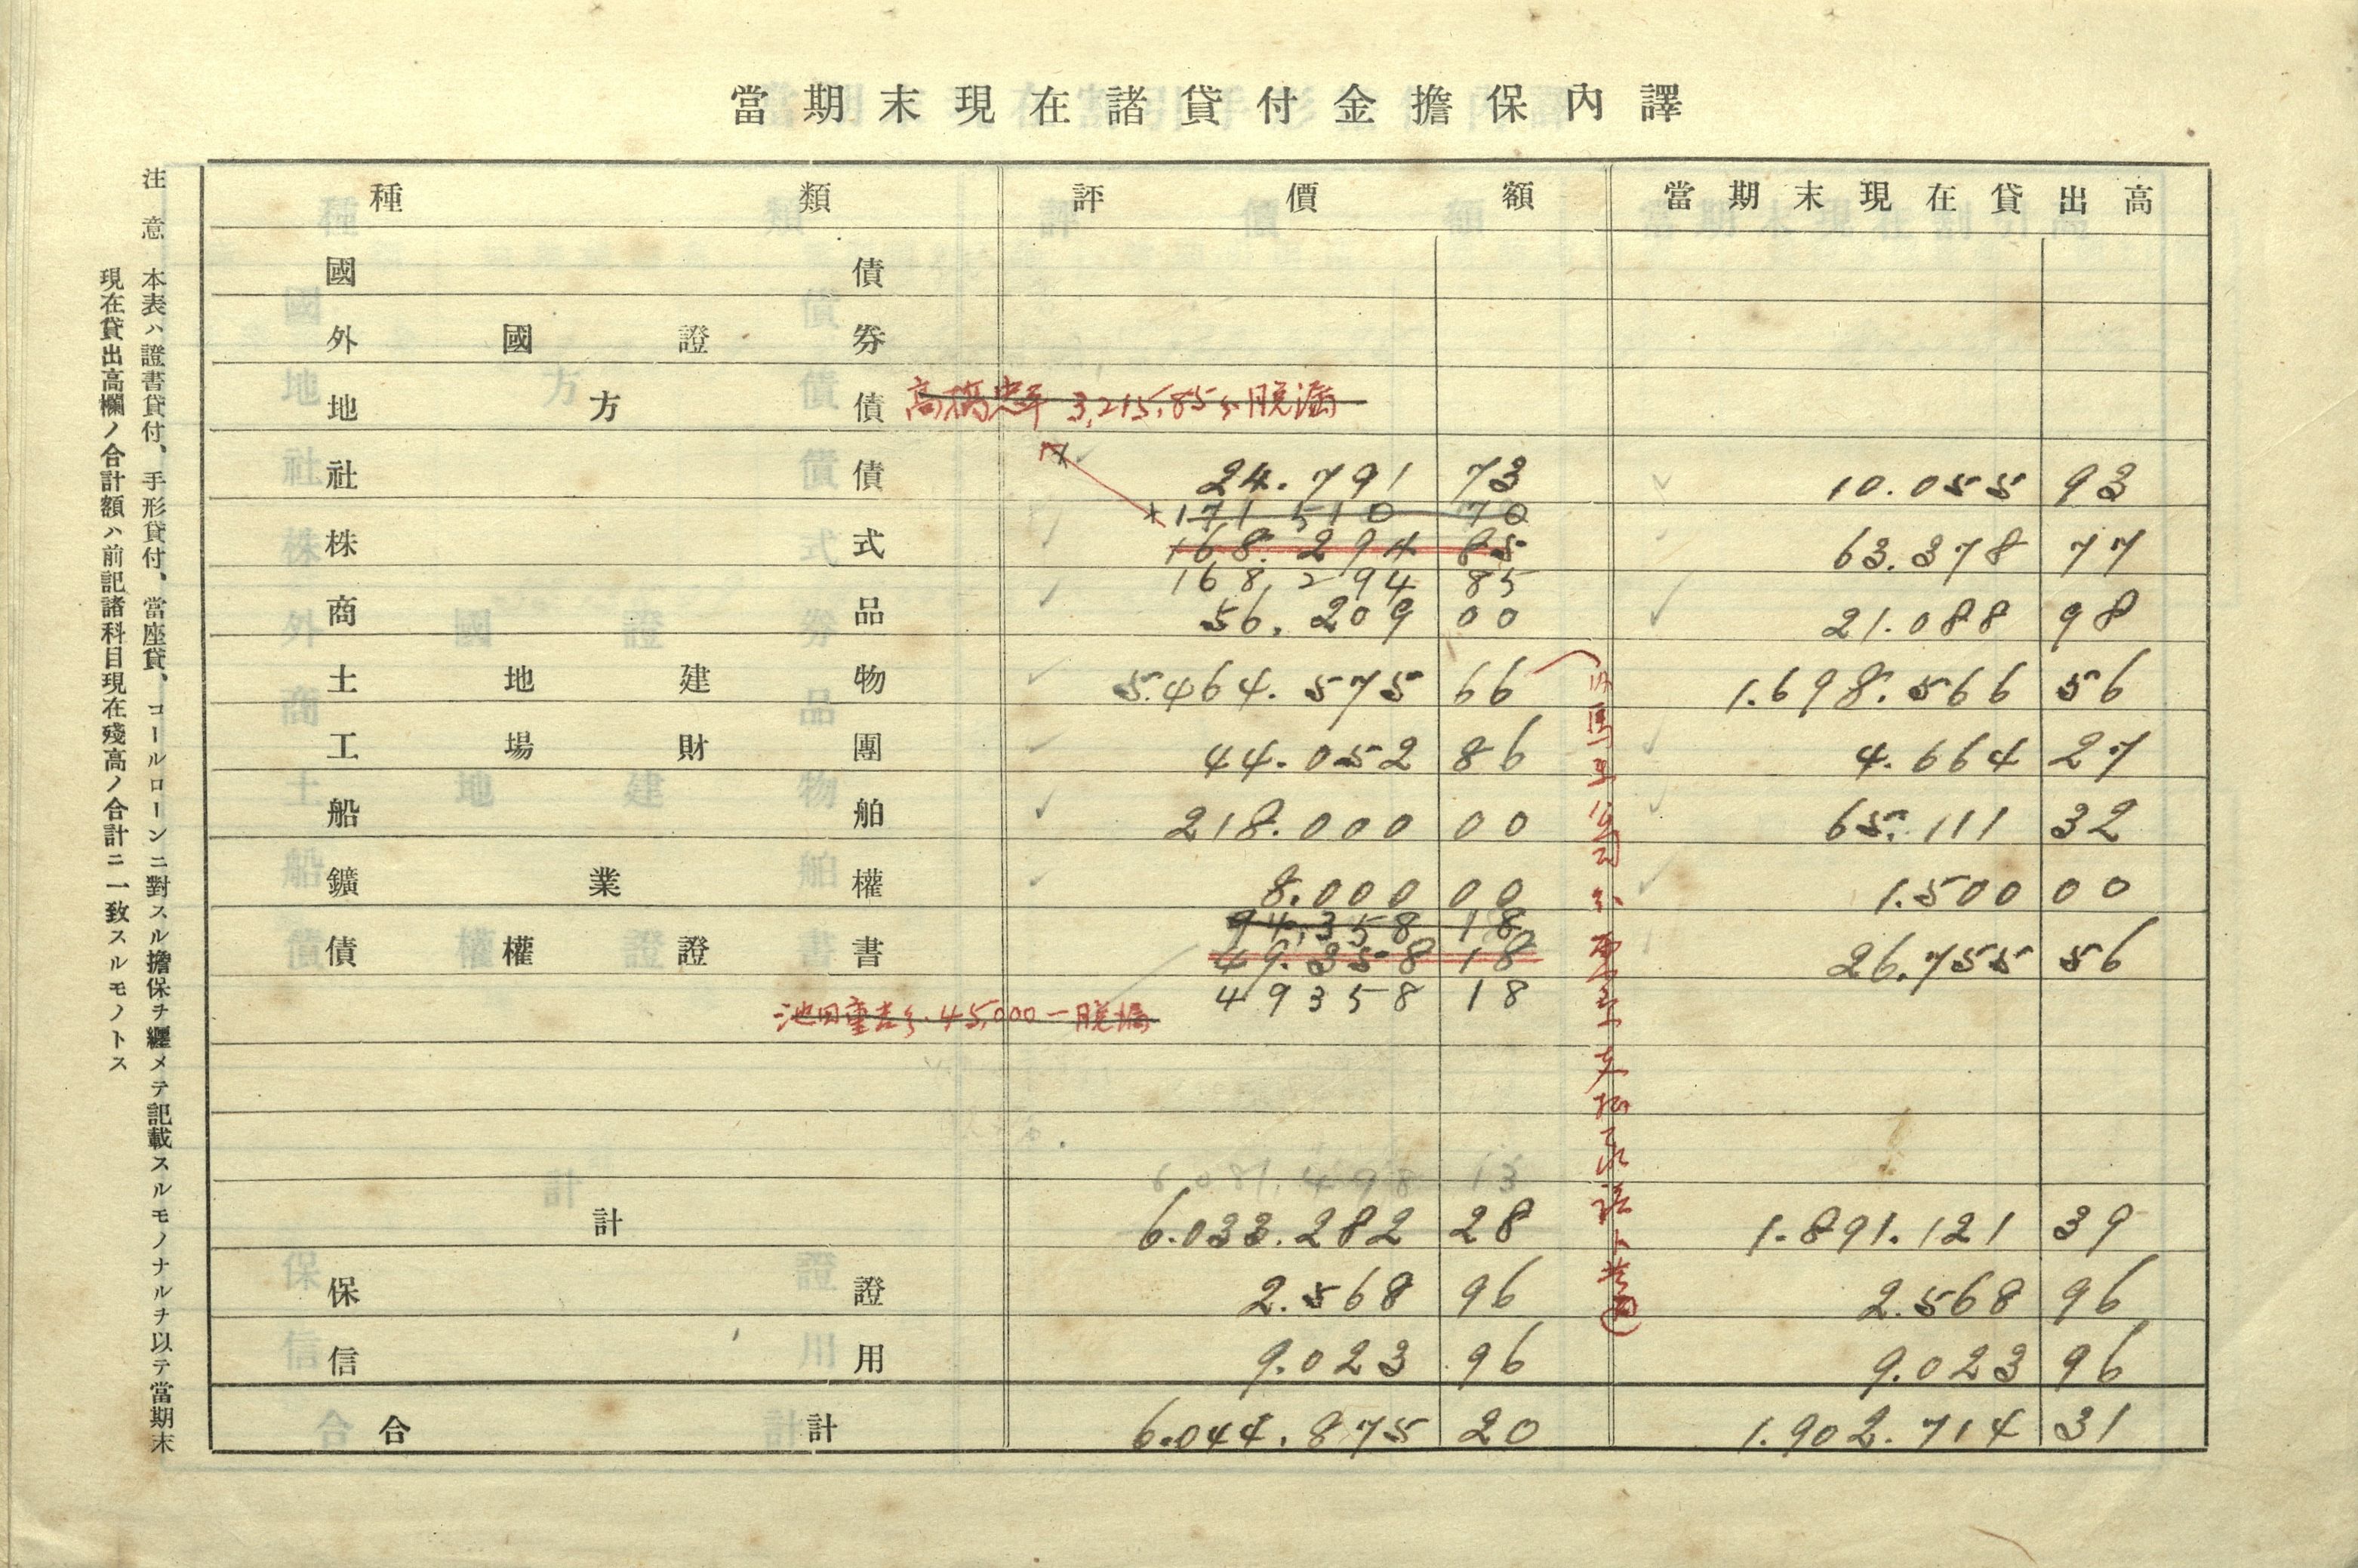 當期末現在諸貸付金擔保內譯
種類 評價額 當期末現在貸出高
國債
外國證券
地方債
高橋忠平 3,215.85 脫漏
社債 24.791 73 10.055 93
171 510 70
株式 168.294 85 63.378 77
168,294 85
商品 56.209 00 21.088 98
土地建物 5.464.575 66 1.698.566 56
工場財團 44.052 86 4.664 27
船舶 218.000 00 65.111 32
鑛業權 8.000 00 1.500 00
94,358 18
債權證書 49.358 18 26.755 56
49358 18
池田重吉分 45,000 一脫漏
6.081.498 13
計 6.033.282 28 1.891.121 39
保證 2.568 96 2.568 96
信用 9.023 96 9.023 96
合計 6.044.875 20 1.902.714 31
注意 本表ハ證書貸付、手形貸付、當座貸、コールローンニ對スル擔保ヲ纒メテ記載スルモノナルヲ以テ當期末
現在貸出高欄ノ合計額ハ前記諸科目現在殘高ノ合計ニ一致スルモノトス